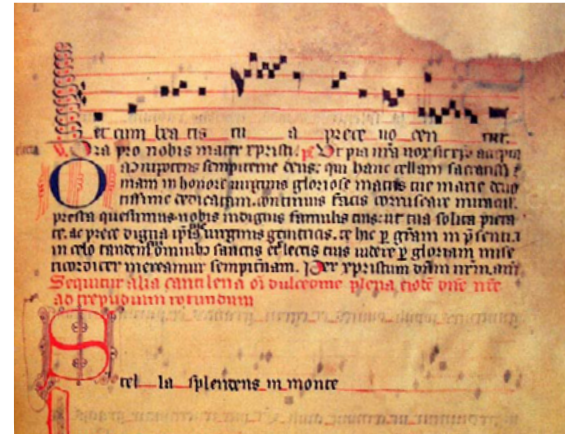 et cum bea tis tu a prece uo cen tur.
Ora pro nobis mater xpristi. Ut pia
nipotens sempiterne deus: qui hanc cellam sacratissi
mam in honore uirginis gloriose matris tue marie deuo
tissime dedicatam. continuis facis coruscare miraculis.
presta quesumus nobis indignis famulis tuis: ut tua solita pieta
te. ac prece digna ipsius uirginis genitricis. et hic p gram in psenti. 
in celo tandem omnibus sanctis et lectis eius uidere p gloriam mise
ricorditer mereamur sempitnam. Per xpristum dnm nrm. am
Sequitur alia cantilena oi dulcedine plena eiusde dne nre
ad trepudium rotundum
Stel la splendens in monte